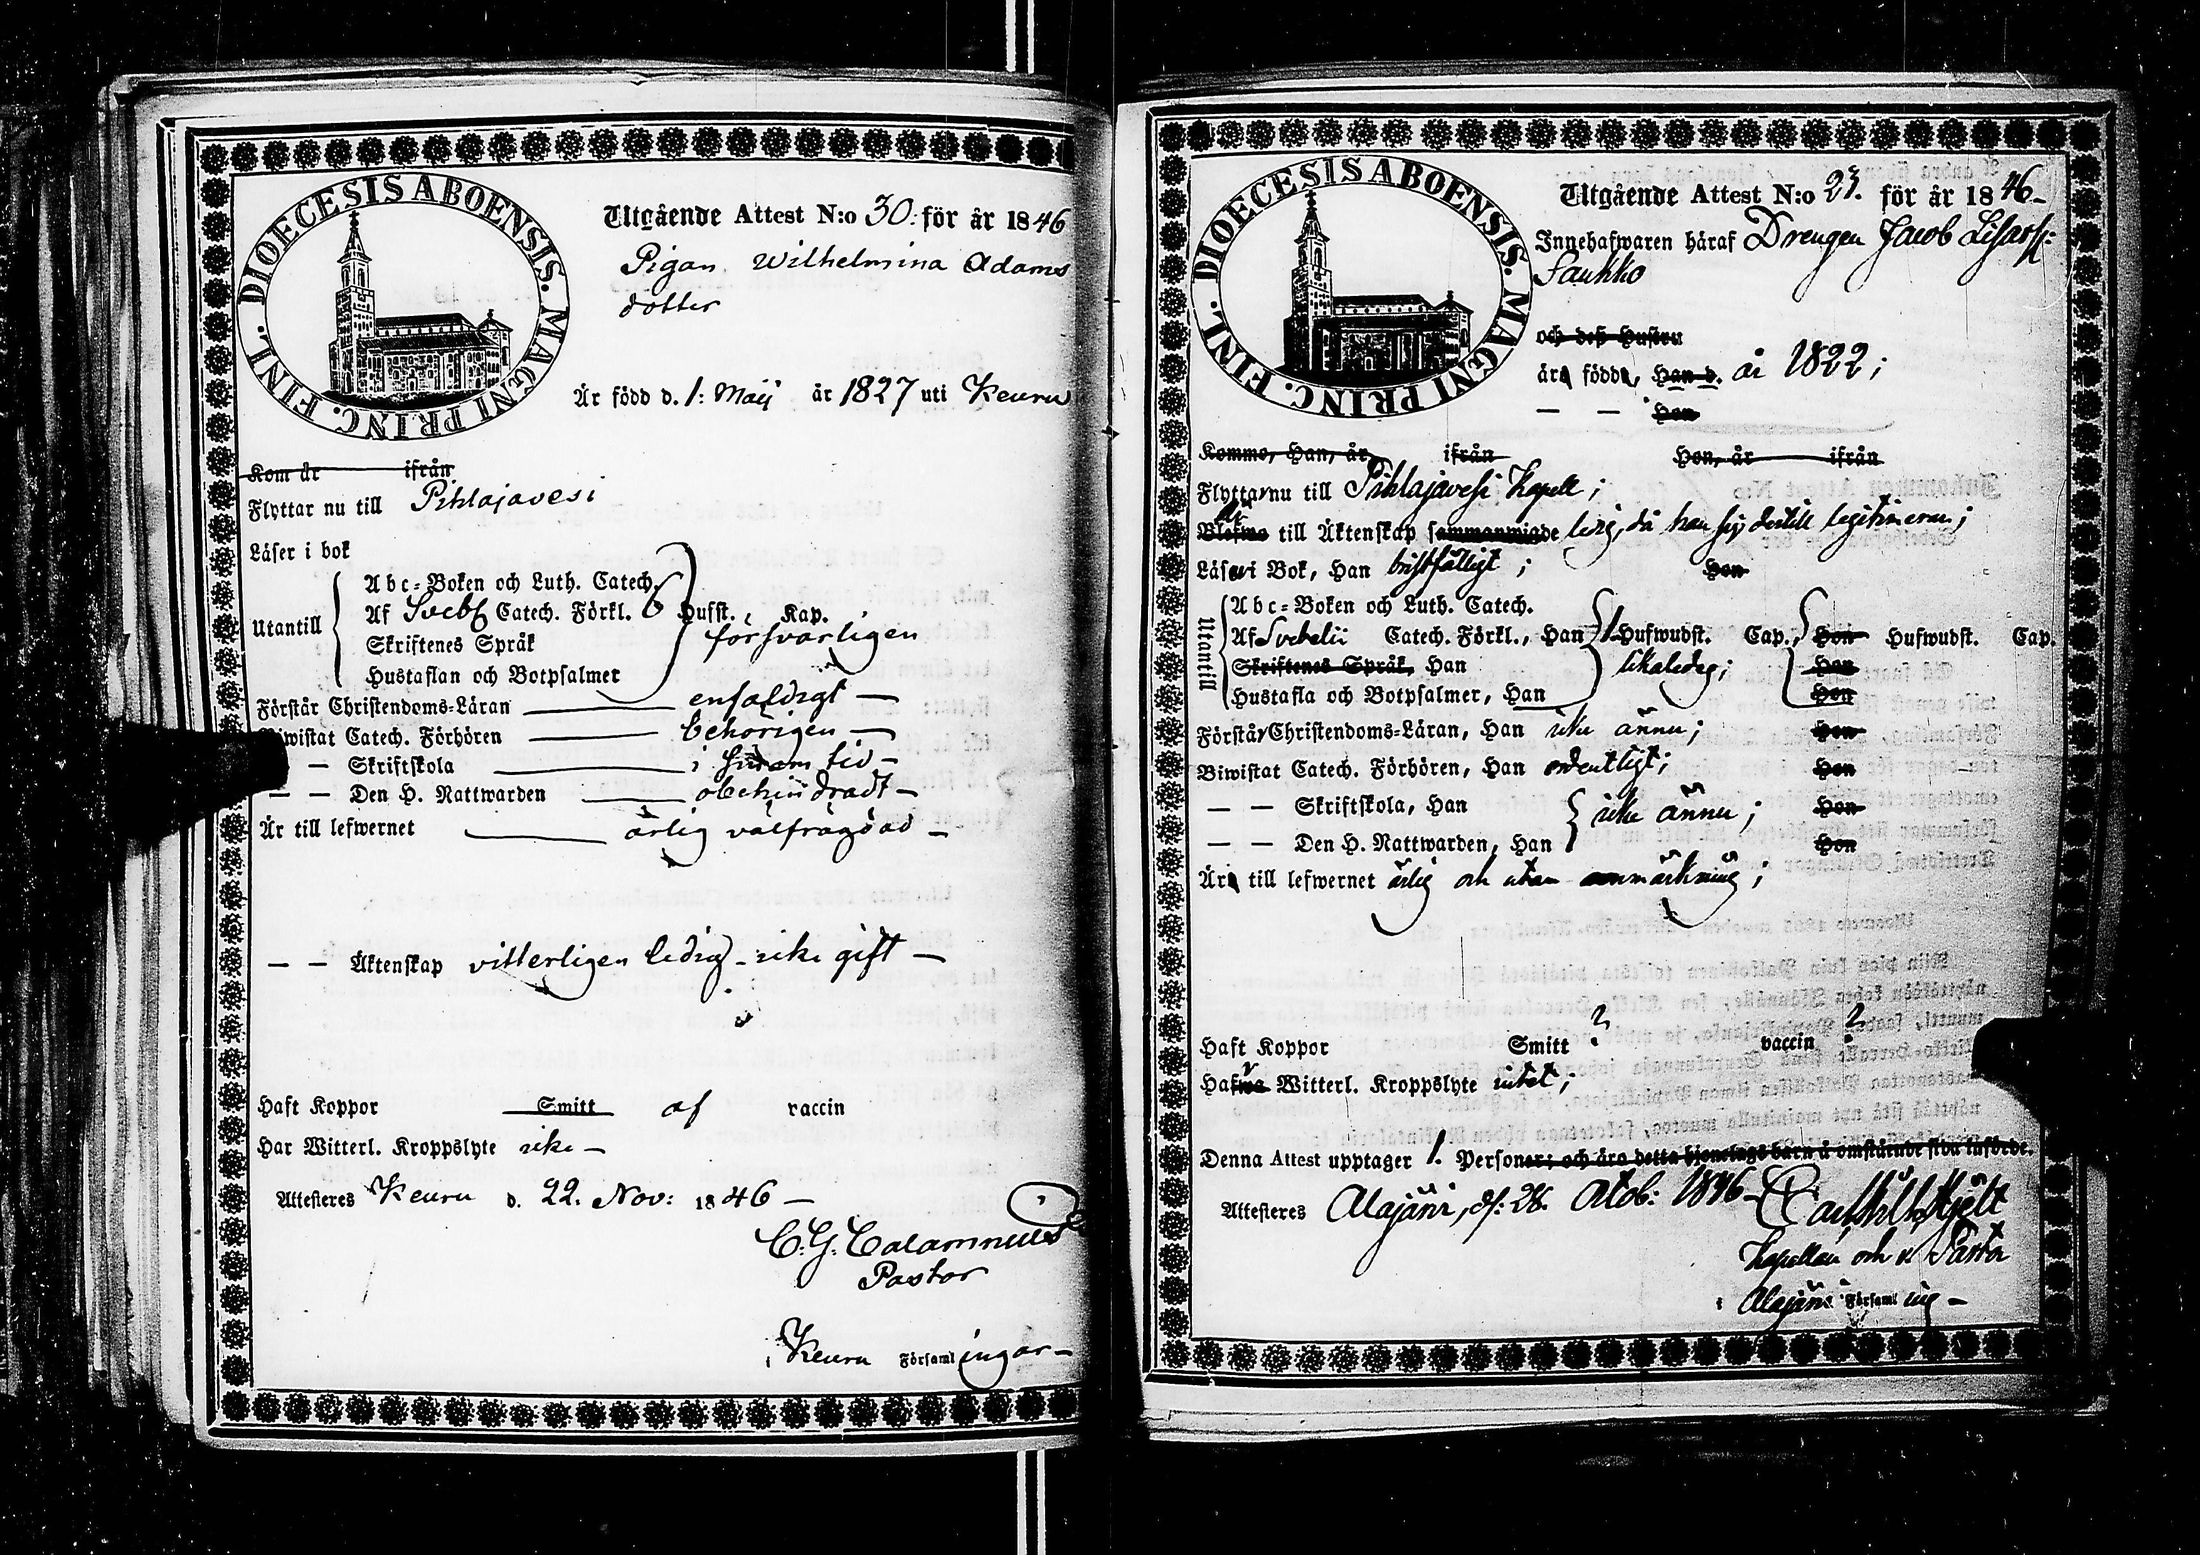 DIOECESIS ABOENSIS. MAGNI PRINC. FINL.
Utgående Attest N:o 30. för år 1846
Pigan Wilhelmina Adams
dotter
Är född d. 1: Maji år 1827 uti Keuru
Kom år ifrån
Flyttar nu till Pihlajavesi
Läser i bok
Utantill
Abc-Boken och Luth. Catech.
Af Sveb Catech. Förkl. 6 Hufst. Kap.
Skriftenes Språk
försvarligen
Hustaflan och Botpsalmer
Förstår Christendoms-Läran enfaldigt —
Biwistat Catech. Förhören behörigen —
— Skriftskola i sinom tid —
— — Den H. Nattwarden obehindradt —
Är till lefwernet ärlig välfrägdad —
— — Äktenskap vitterligen ledig – icke gift —
Haft Koppor Smitt af vaccin
Har Witterl. Kroppslyte icke —
Attesteres Keuru d. 22. Nov: 1846 —
C. G. Calamnius
Pastor
i Keuru Församlingar —
DIOECESIS ABOENSIS. MAGNI PRINC. FINL.
Utgående Attest N:o 23. för år 1846 —
Innehafwaren häraf Drengen Jacob
Saukko
och deß Hustru
äro födde, Han d. år 1822;
— — Hon
Komme, Han, år ifrån Hon, år ifrån
Flytta nu till Pihlajavesi Kapell;
till Äktenskap sammanwigde ledig, då han sig dertill legitimerar;
Läsa i Bok, Han bristfälligt; Hon
Utantill
Abc-Boken och Luth. Catech.
Af Svebelii Catech. Förkl., Han Hufwudst. Cap., Hon Hufwudst. Cap.
Skriftenes Språk, Han likaledes; Hon
Hustafla och Botpsalmer, Han Hon
Förstår Christendoms-Läran, Han icke ännu; Hon
Biwistat Catech. Förhören, Han ordentligt; Hon
— — Skriftskola, Han icke ännu; Hon
— — Den H. Nattwarden, Han Hon
Äro till lefwernet ärlig och utan anmärkning;
Haft Koppor Smitt ? vaccin ?
Hafwa Witterl. Kroppslyte intet;
Denna Attest upptager 1. Personer; och äro detta hjonelags barn å omstående sida införde.
Attesteres Alajärvi, d: 28. Octob: 1846 —
Kapellan och v. Pastor
i Alajärvi Församling —